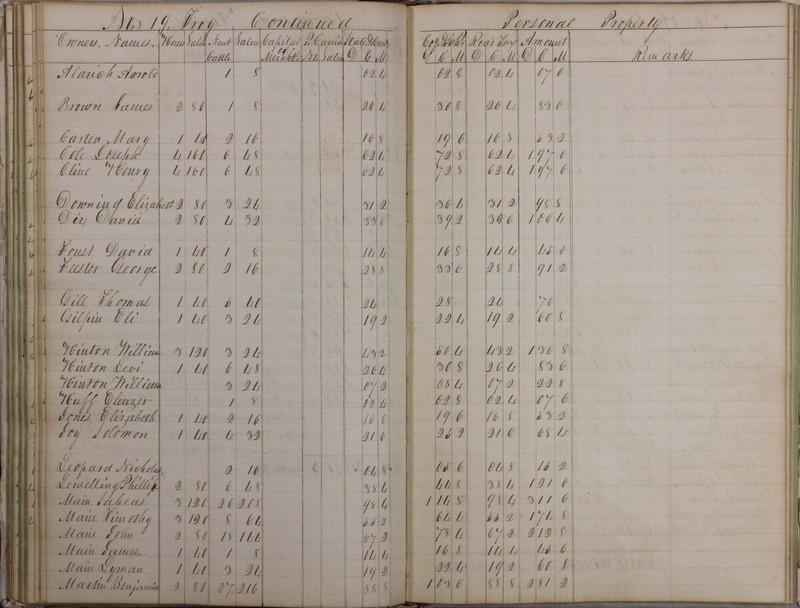 No 19 Troy Continued Personal Property
Owners Names Value Neat cattle Value Capital Amount Remarks
1 8 02 4 02 8 02 4 07 6
Brown James 2 80 1 8 26 4 30 8 26 4 83 6
Carter Mary 1 40 2 16 16 8 19 6 16 8 53 2
Cole Joseph 4 160 6 48 62 4 72 8 62 4 197 6
Cline Henry 4 160 6 48 62 4 72 8 62 4 197 6
Downing Elizabeth 2 80 3 24 31 2 36 4 31 2 98 8
Dix David 2 80 4 32 33 6 39 2 33 6 106 4
Foust David 1 40 1 8 14 4 16 8 14 4 45 6
Foster George 2 80 2 16 28 8 33 6 28 8 91 2
Gill Thomas 1 40 5 40 24 28 24 76
Gilpin Eli 1 40 3 24 19 2 22 4 19 2 60 8
Hinton William 3 120 3 24 43 2 50 4 43 2 136 8
Hinton Levi 1 40 6 48 26 4 30 8 26 4 83 6
Hinton William 3 24 07 2 08 4 07 2 22 8
Huff Eleazer 1 8 02 4 02 8 02 4 07 6
Jones Elizabeth 1 40 2 16 16 8 19 6 16 8 53 2
Joy Solomon 1 40 4 32 21 6 25 2 21 6 68 4
Leopard Nicholas 2 16 04 8 05 6 04 8 15 2
Lewelling Phillip 2 80 6 48 38 4 44 8 38 4 121 6
Main 3 120 26 208 98 4 1 14 8 98 4 311 6
Main Timothy 3 120 8 64 55 2 64 4 55 2 174 8
Main John 2 80 18 144 67 2 78 4 67 2 212 8
Main James 1 40 1 8 14 4 16 8 14 4 45 6
Main Lyman 1 40 3 24 19 2 22 4 19 2 60 8
Martin Benjamin 2 80 27 216 88 8 1 03 6 88 8 281 2